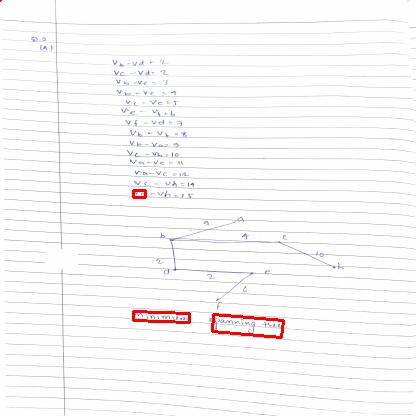 Q.2
(A)
Vb - Vd = 2
Vc - Vd = 2
Vb - Vc = 3
Vb - Vc = 4
Vc - Ve = 5
Ve - Vf = 6
Vf - Vd = 7
Vb - Vf = 8
Vb - Va = 9
Vc - Vh = 10
Va - Ve = 11
Va - Vc = 12
Vc - Vh = 14
- Vh = 15
9 a
b 4 c
2 10 h
d 2 e
6
f
Minimum spanning tree